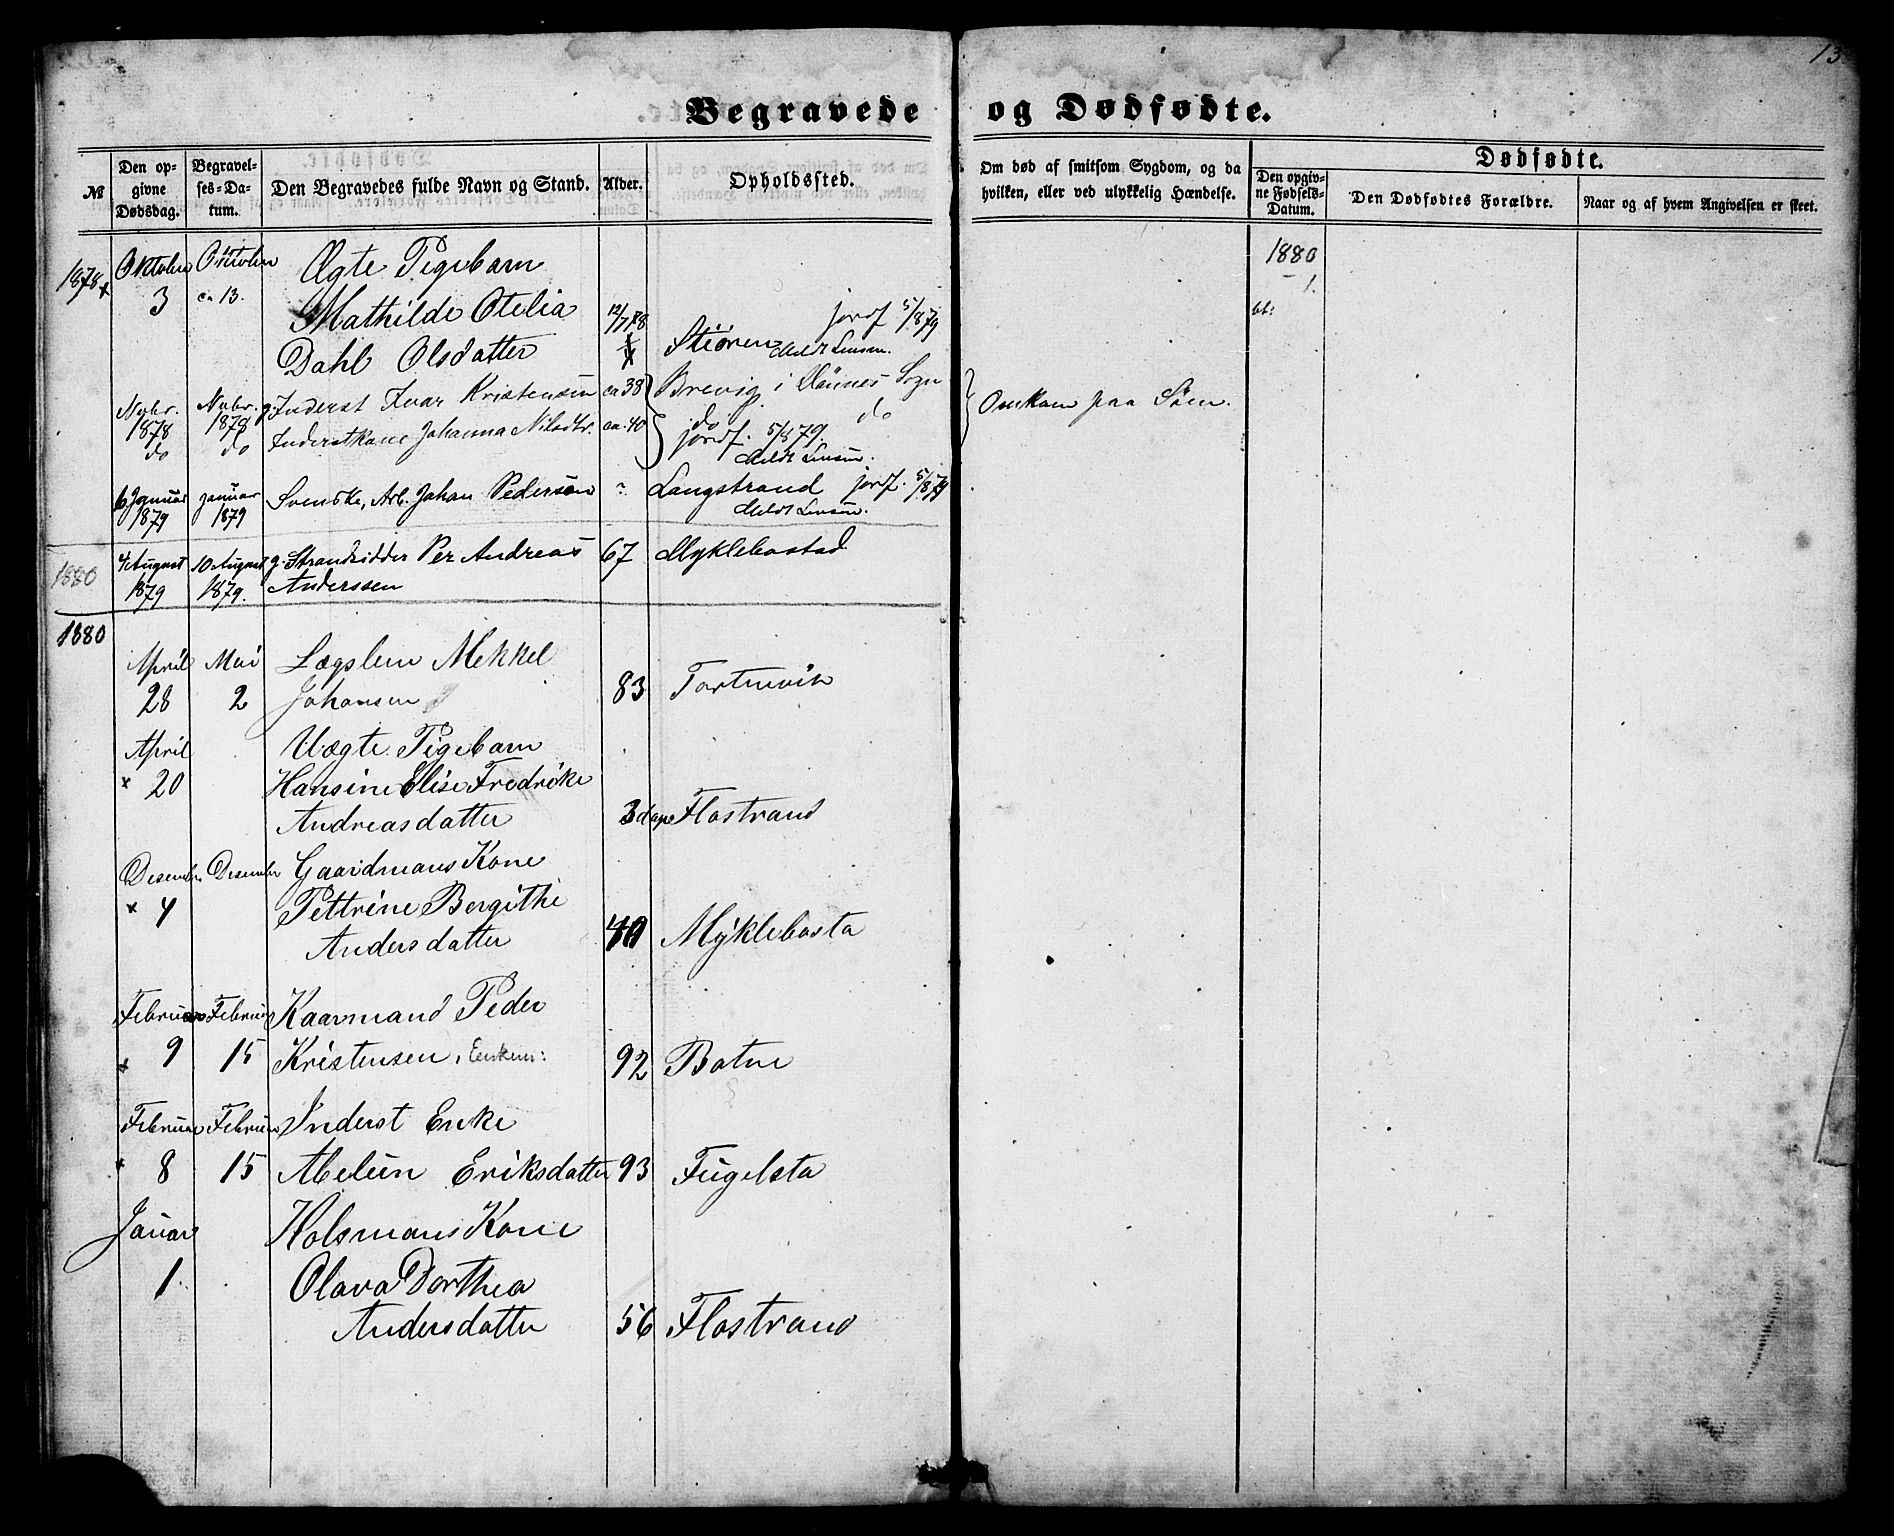 13
Begravede og Dødfødte.
№
Den opgivne Dødsdag.
Begravelses-Datum.
Den Begravedes fulde Navn og Stand.
Alder.
Opholdssted.
Om død af smitsom Sygdom, og da hvilken, eller ved ulykkelig Hændelse.
Dødfødte.
Den opgivne Fødsels-Datum.
Den Dødfødtes Forældre.
Naar og af hvem Angivelsen er skeet.
1878 Oktober Oktober Ægte Pigebarn 1880
3 ca 13. Mathilde Otelia 12/7 78 jordf 5/8 79
Dahl Olsdatter Stiören
Novbr. 1878 Novbr. 1878 g. Inderst Ivar Kristensen ca 38 Brevig i Sogn Omkom paa Søen.
do do Inderstkone Johanna Nilsdtr. ca. 40 do do
jordf. 5/8 79.
6 Januar 1879 Januar 1879 Svenske, Arb. Johan Pedersen ? Langstrand jordf. 5/8 79
1880 4 August 1879 10 August 1879. g. Strandsidder Per Andreas 67 Myklebostad
Anderssen
1880
April Mai Lægslem Mekkel
28 2 Johansen 83
April Uægte Pigebarn
× 20 Hansine Elise Fredrike
Andreasdatter 3 dage Flostrand
Desember Desember Gaardmans Kone
× 4 Pettrine Bergithe
Andersdatter 40 Myklebosta
Februar Februar Kaarmand Peder
× 9 15 Kristensen, Enkem: 92 Botne
Februar Februar Inderst Enke
× 8 15 Abelun Eriksdatter 93 Fugelsta
Januar Holsmans Kone
1 Olava Dorthea
Andersdatter 56 Flostrand